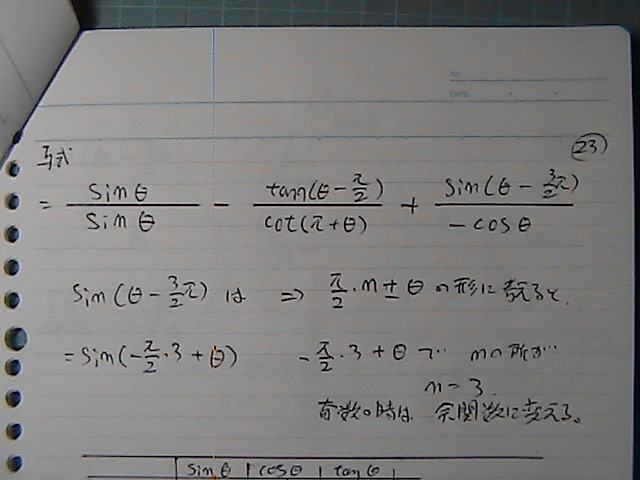 No.
DATE
23
与式
= sinθ/sinθ - tan(θ - π/2)/cot(π + θ) + sin(θ - 3/2π)/-cosθ
sin(θ - 3/2π) は ⇒ π/2・n ± θ の形に教えると、
= sin(-π/2・3 + θ) -π/2・3 + θ で nの所が…
n = 3
奇数の時は 余関数に変える。
sinθ cosθ tanθ